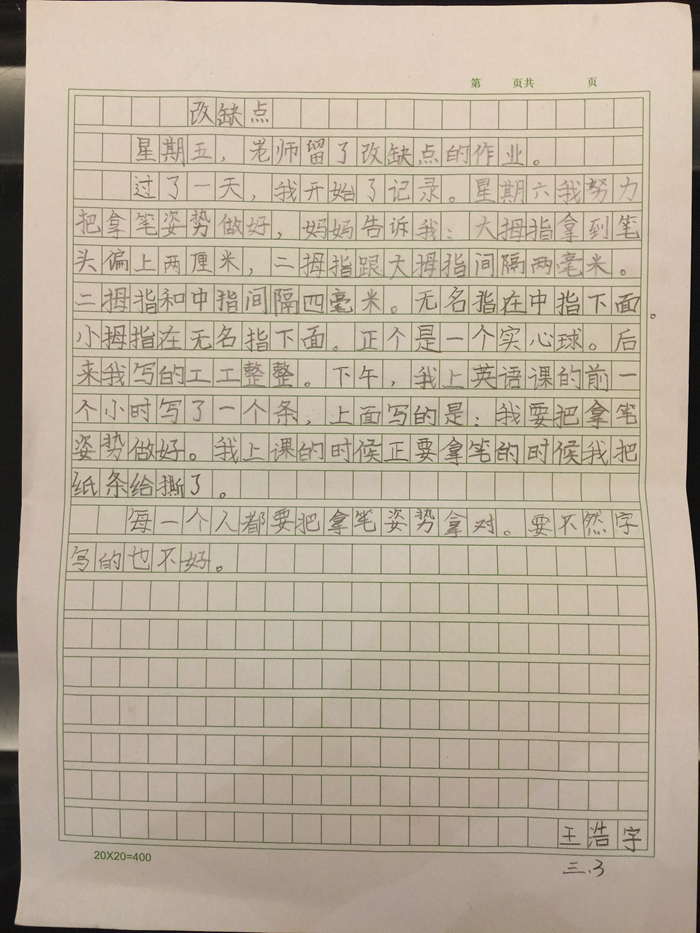 第 页共 页
改缺点
星期五，老师留了改缺点的作业。
过了一天，我开始了记录。星期六我努力
把拿笔姿势做好，妈妈告诉我：大拇指拿到笔
头偏上两厘米，二拇指跟大拇指间隔两毫米。
二拇指和中指间隔四毫米。无名指在中指下面。
小拇指在无名指下面。正个是一个实心球。后
来我写的工工整整。下午，我上英语课的前一
个小时写了一个条，上面写的是：我要把拿笔
姿势做好。我上课的时候正要拿笔的时候我把
纸条给撕了。
每一个人都要把拿笔姿势拿对。要不然字
写的也不好。
王浩宇
20X20=400
三.3